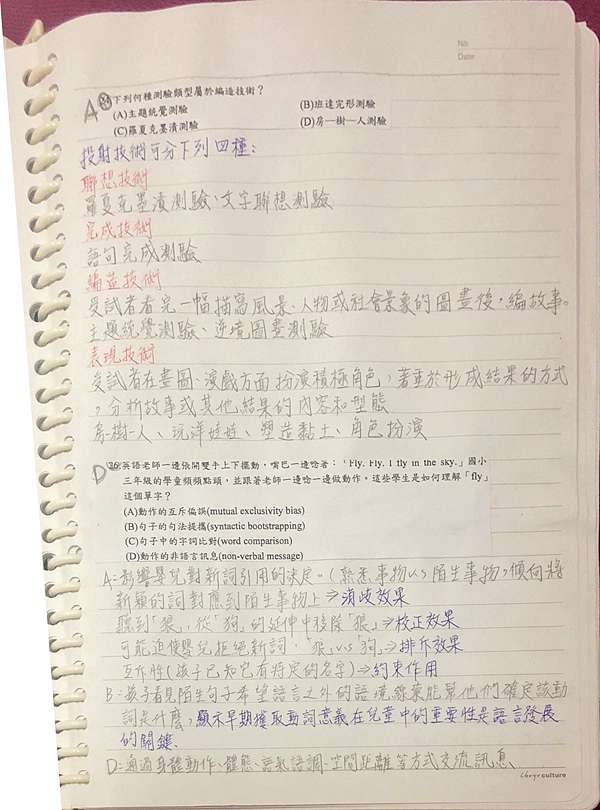 No.
Date
A 34.下列何種測驗類型屬於編造技術?
(A)主題統覺測驗 (B)班達完形測驗
(C)羅夏克墨漬測驗 (D)房—樹—人測驗
投射技術可分下列四種:
聯想技術
羅夏克墨漬測驗、文字聯想測驗
完成技術
語句完成測驗
編造技術
受試者看完一幅描寫風景、人物或社會景象的圖畫後,編故事。
主題統覺測驗、逆境圖畫測驗
表現技術
受試者在畫圖、演戲方面扮演積極角色,著重於形成結果的方式
,分析故事或其他結果的內容和型態
房-樹-人、玩洋娃娃、塑造黏土、角色扮演
D 36.英語老師一邊張開雙手上下擺動,嘴巴一邊唸著:「Fly. Fly. I fly in the sky.」國小
三年級的學童頻頻點頭,並跟著老師一邊唸一邊做動作。這些學生是如何理解「fly」
這個單字?
(A)動作的互斥偏誤(mutual exclusivity bias)
(B)句子的句法提攜(syntactic bootstrapping)
(C)句子中的字詞比對(word comparison)
(D)動作的非語言訊息(non-verbal message)
A=影響嬰兒對新詞引用的決定。(熟悉事物vs陌生事物,傾向將
新穎的詞對應到陌生事物上⇒消歧效果
聽到「狼」,從「狗」的延伸中移除「狼」⇒校正效果
可能迫使嬰兒拒絕新詞,「狼」vs「狗」⇒排斥效果
互斥性(孩子已知它有特定的名字)⇒約束作用
B=孩子看見陌生句子希望語言之外的語境線索能幫他們確定該動
詞是什麼,顯示早期獲取動詞意義在兒童中的重要性是語言發展
的關鍵.
D=通過身體動作、體態、語氣語調、空間距離等方式交流訊息
culture